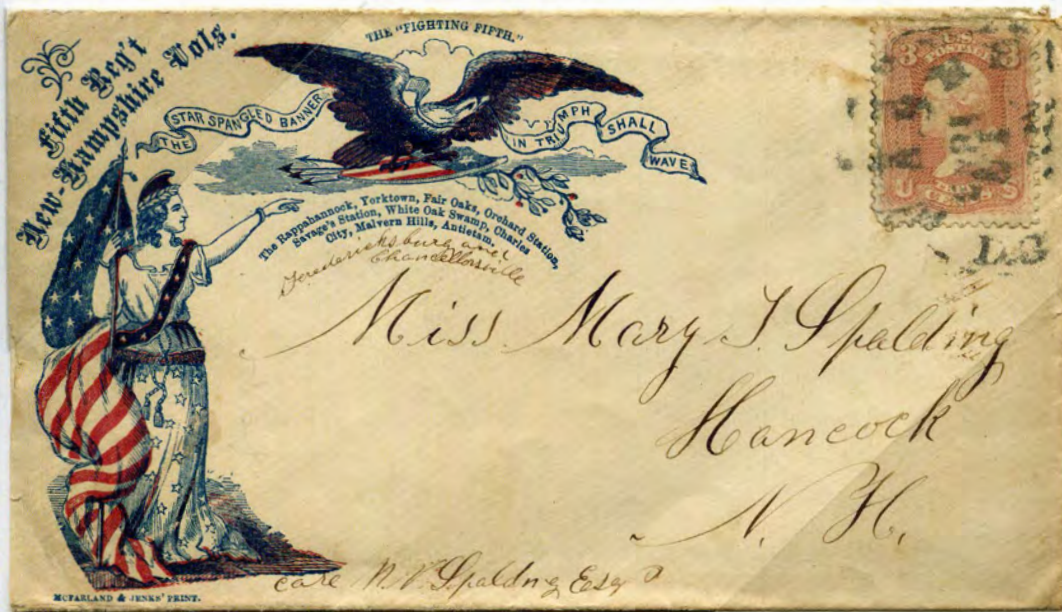 Fifth Reg't
New-Hampshire Vols.
THE "FIGHTING FIFTH."
THE STAR SPANGLED BANNER IN TRIUMPH SHALL WAVE
The Rappahannock, Yorktown, Fair Oaks, Orchard Station,
Savage's Station, White Oak Swamp, Charles
City, Malvern Hills, Antietam.
Fredericksburg and
Chancellorsville
3 U.S. 3
POSTAGE
U CENTS S
Miss Mary J. Spalding
Hancock
N. H.
care N. Spaldng Esq
MCFARLAND & JENKS' PRINT.